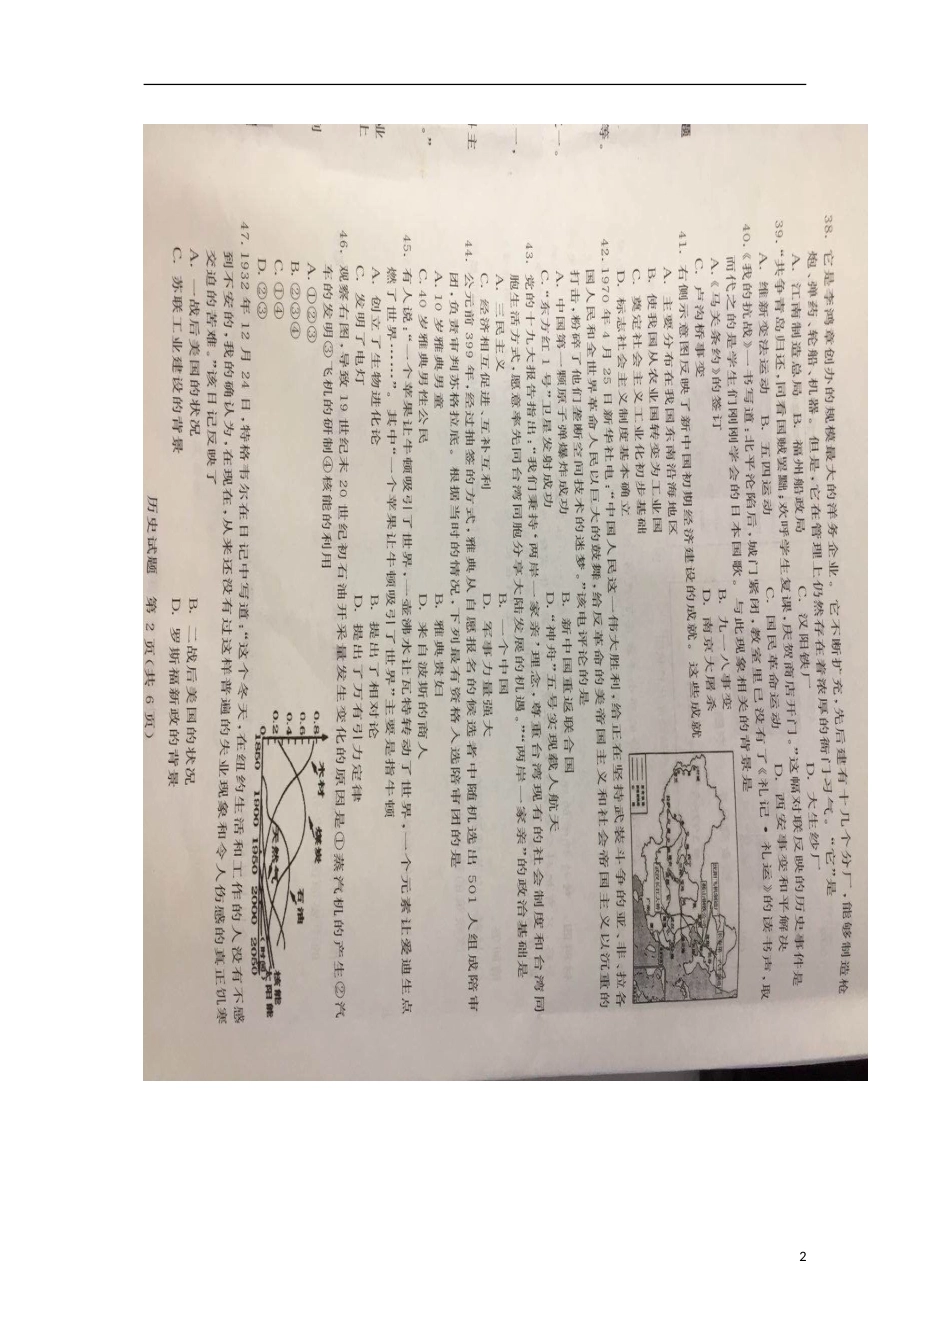 38. 它是李鸿章创办的规模最大的洋务企业。它不断扩充,先后建有十几个分厂,能够制造枪
炮、弹药、轮船、机器。但是,它在管理上仍然存在着浓厚的衙门习气。“它”是
A. 江南制造总局 B. 福州船政局 C. 汉阳铁厂 D. 大生纱厂
39. “共争青岛归还,同看国贼罢黜;欢呼学生复课,庆贺商店开门。”这幅对联反映的历史事件是
A. 维新变法运动 B. 五四运动 C. 国民革命运动 D. 西安事变和平解决
40. 《我的抗战》一书写道:北平沦陷后,城门紧闭,教室里已没有了《礼记·礼运》的读书声,取
而代之的是学生们刚刚学会的日本国歌。与此现象相关的背景是
A. 《马关条约》的签订 B. 九一八事变
C. 卢沟桥事变 D. 南京大屠杀
41. 右侧示意图反映了新中国初期经济建设的成就。这些成就
A. 主要分布在我国东南沿海地区
B. 使我国从农业国转变为工业国
C. 奠定社会主义工业化初步基础
D. 标志社会主义制度基本确立
42. 1970年4月25日新华社电:“中国人民这一伟大胜利,给正在坚持武装斗争的亚、非、拉各
国人民和全世界革命人民以巨大的鼓舞,给反革命的美帝国主义和社会帝国主义以沉重的
打击,粉碎了他们垄断空间技术的迷梦。”该电评论的是
A. 中国第一颗原子弹爆炸成功 B. 新中国重返联合国
C. “东方红1号”卫星发射成功 D. “神舟”五号实现载人航天
43. 党的十九大报告指出:“我们秉持‘两岸一家亲’理念,尊重台湾现有的社会制度和台湾同
胞生活方式,愿意率先同台湾同胞分享大陆发展的机遇。”“两岸一家亲”的政治基础是
A. 三民主义 B. 一个中国
C. 经济相互促进、互补互利 D. 军事力量强大
44. 公元前399年,经过抽签的方式,雅典从自愿报名的候选者中随机选出501人组成陪审
团,负责审判苏格拉底。根据当时的情况,下列最有资格入选陪审团的是
A. 10岁雅典男童 B. 雅典贵妇
C. 40岁雅典男性公民 D. 来自波斯的商人
45. 有人说:“一个苹果让牛顿吸引了世界,一壶沸水让瓦特转动了世界,一个元素让爱迪生点
燃了世界……”。其中“一个苹果让牛顿吸引了世界”主要是指牛顿
A. 创立了生物进化论 B. 提出了相对论
C. 发明了电灯 D. 提出了万有引力定律
46. 观察右图,导致19世纪末20世纪初石油开采量发生变化的原因是①蒸汽机的产生②汽
车的发明③飞机的研制④核能的利用
A. ①②③
B. ②③④
C. ①④
D. ②③
0.8
0.6
0.4
0.2
0
木材
煤炭
石油
天然气
核能
太阳能
1850 1900 1950 2000 2050
(时间)
47. 1932年12月24日,特格韦尔在日记中写道:“这个冬天,在纽约生活和工作的人没有不感
到不安的,我的确认为,在现在,从来还没有过这样普遍的失业现象和令人伤感的真正饥寒
交迫的苦难。”该日记反映了
A. 一战后美国的状况 B. 二战后美国的状况
C. 苏联工业建设的背景 D. 罗斯福新政的背景
历史试题 第2页(共6页)
2